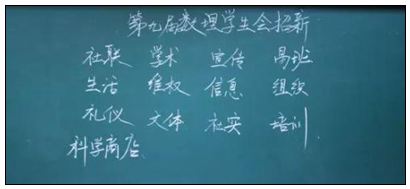 第九届数理学生会招新
社联 学术 宣传 高班
生活 维权 信息 组织
礼仪 文体 社实 培训
科学商店